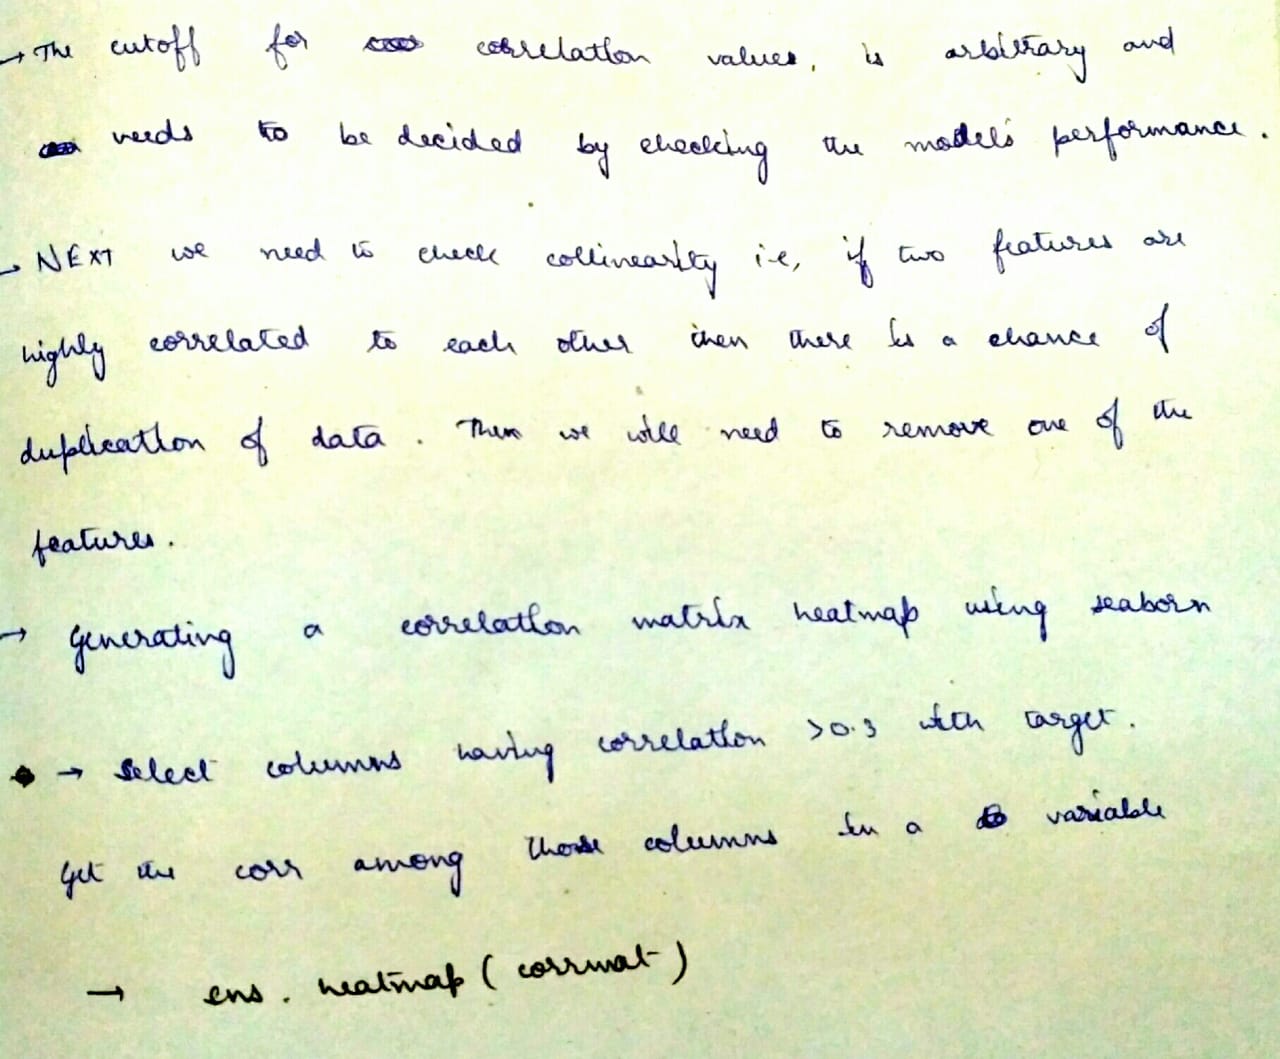 → The cutoff for correlation values, is arbitrary and
needs to be decided by checking the model's performance.
→ NEXT we need to check collinearity i.e, if two features are
highly correlated to each other then there is a chance of
duplication of data. Then we will need to remove one of the
features.
→ Generating a correlation matrix heatmap using seaborn
→ Select columns having correlation >0.3 with target.
Get the corr among those columns in a variable
→ sns. heatmap (corrmat)